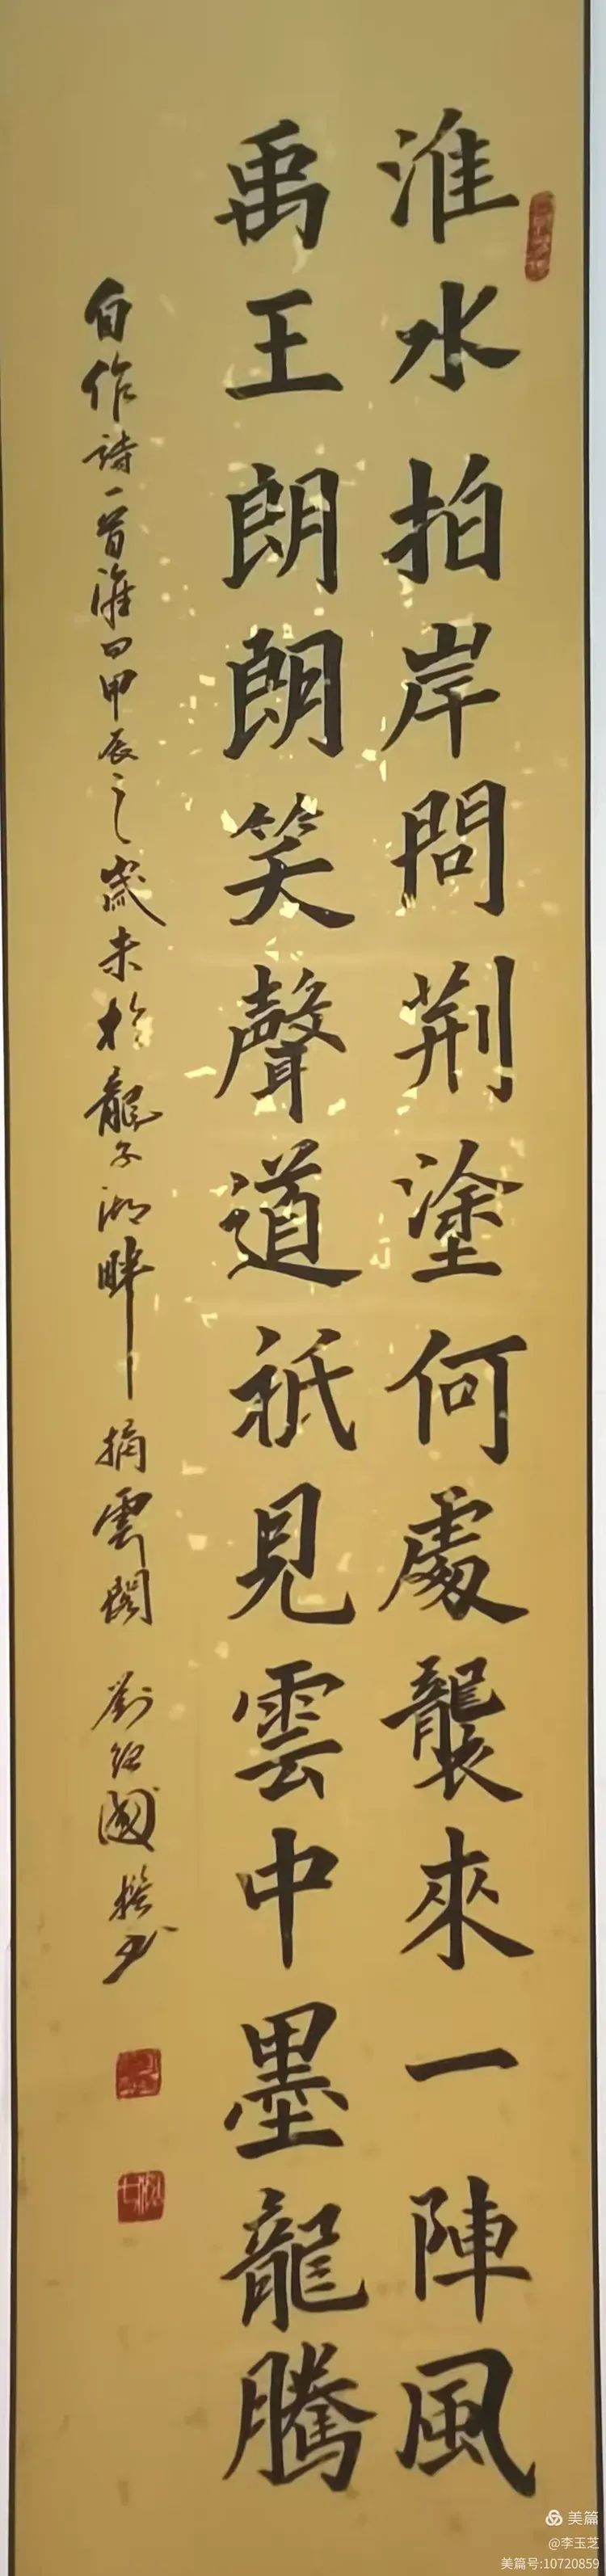 淮水拍岸問荆塗何處襲來一陣風
禹王朗朗笑聲道祇見雲中墨龍騰
自作詩一首淮曰甲辰之歲末於龍子湖畔摘雲閣 劉 國撰书
美篇
@李玉芝
美篇号:10720859